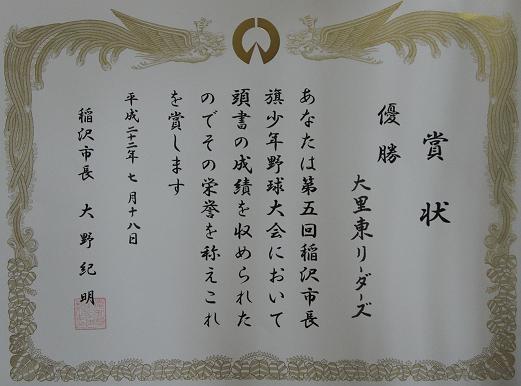 賞状
優勝
大里東リーダーズ
あなたは第五回稲沢市長
旗少年野球大会において
頭書の成績を収められた
のでその栄誉を称えこれ
を賞します
平成二十二年七月十八日
稲沢市長 大野紀明